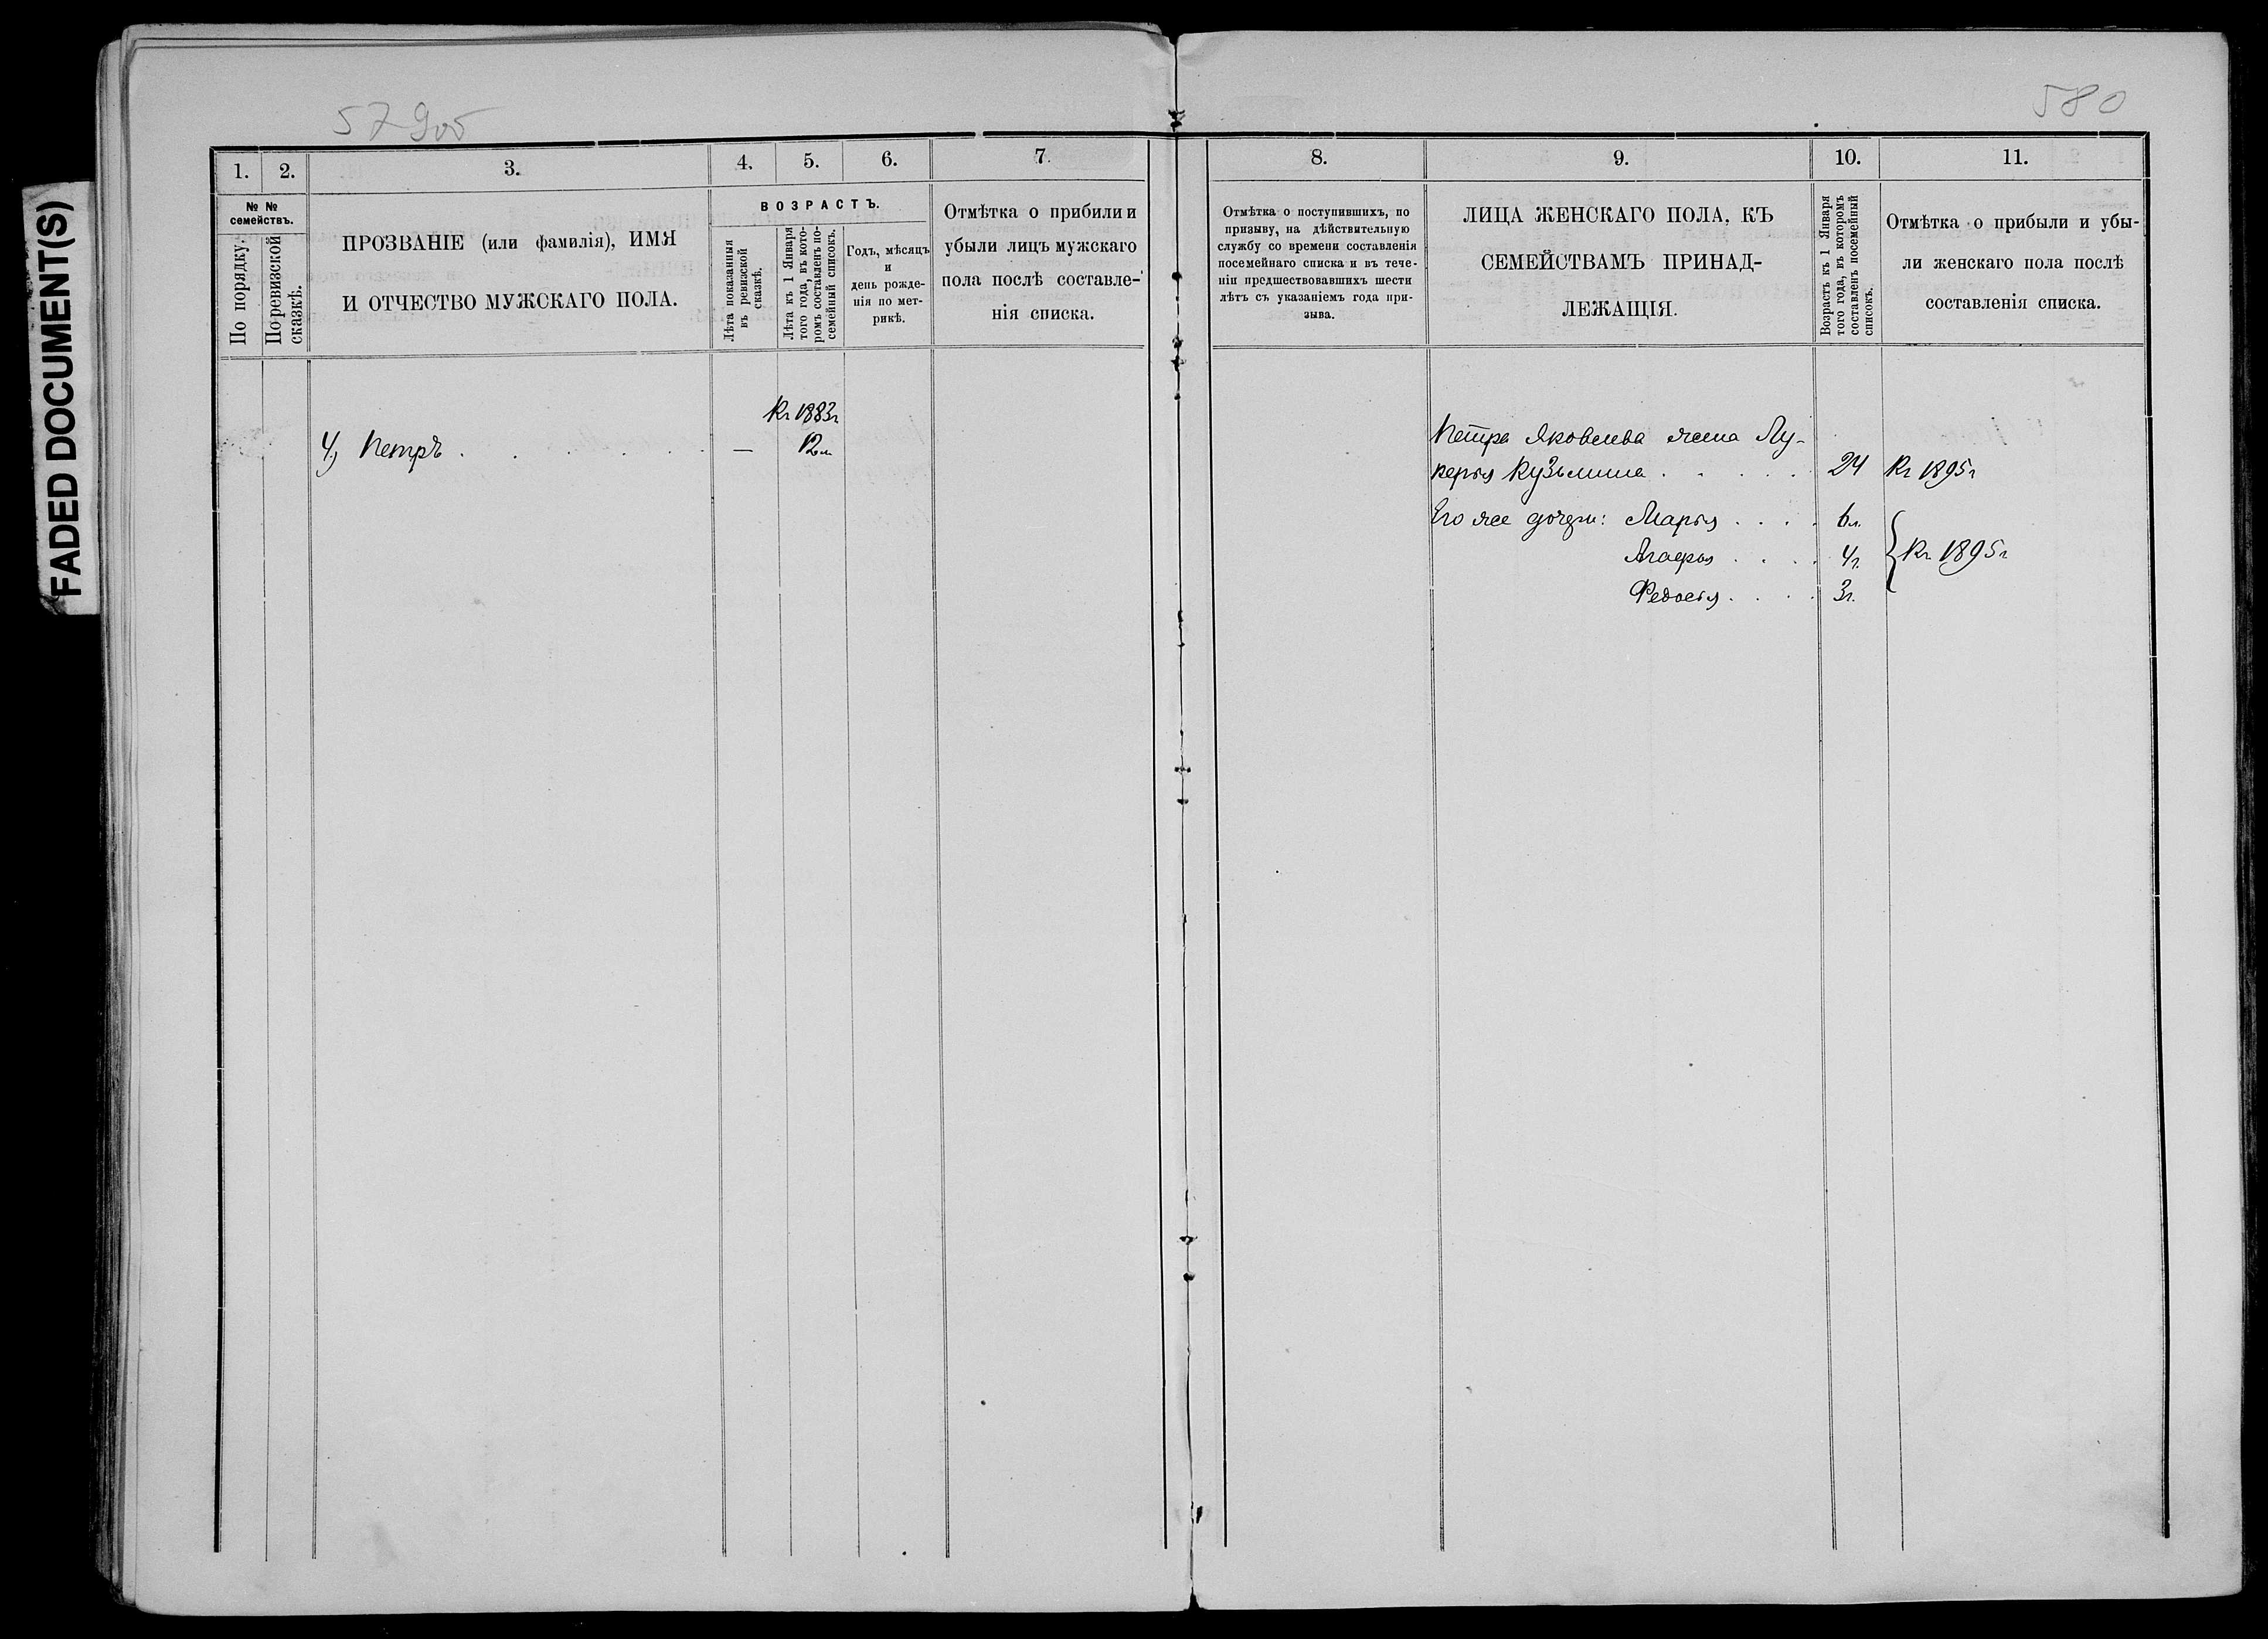 FADED DOCUMENT(S)
579об
580
1. 2. 3. 4. 5. 6. 7. 8. 9. 10. 11.
№ №
семействъ.
По порядку.
По ревизской
сказкѣ.
ПРОЗВАНІЕ (или фамилія), ИМЯ
И ОТЧЕСТВО МУЖСКАГО ПОЛА.
ВОЗРАСТЪ.
Лѣта показанныя
въ ревизской
сказкѣ.
Лѣта къ 1 Января
того года, въ кото-
ромъ составленъ по-
семейный списокъ.
Годъ, мѣсяцъ
и
день рожде-
нія по мет-
рикѣ.
Отмѣтка о прибили и
убыли лицъ мужскаго
пола послѣ составле-
нія списка.
Отмѣтка о поступившихъ, по
призыву, на дѣйствительную
службу со времени составленія
посемейнаго списка и въ тече-
ніи предшествовавшихъ шести
лѣтъ съ указаніемъ года при-
зыва.
ЛИЦА ЖЕНСКАГО ПОЛА, КЪ
СЕМЕЙСТВАМЪ ПРИНАД-
ЛЕЖАЩІЯ.
Возрастъ къ 1 Января
того года, въ которомъ
составленъ посемейный
списокъ.
Отмѣтка о прибыли и убы-
ли женскаго пола послѣ
составленія списка.
Къ 1883г
4) Петръ . . . . . . . — 12л
Петра Яковлева жена Лу-
керья Кузьмина . . . . . 24 Къ 1895г
Его же дочери: Марья . . . . 6л.
Агафья . . . . 4г. Къ 1895г
Федосья . . . . 3г.